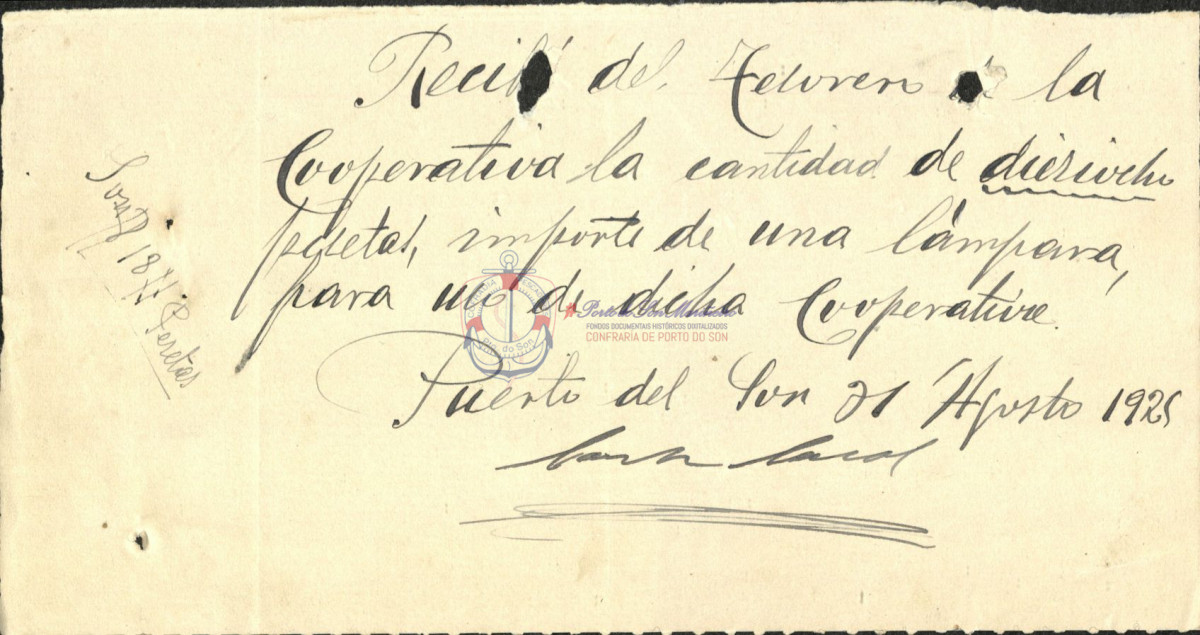 Recibí del Tesorero de la
Cooperativa la cantidad de dieziocho
pesetas, importe de una lámpara,
para de dicha Cooperativa.
Puerto del Son 31 Agosto 192
Son 18 Pesetas
COFRADIA PESCADORES
Pto. do Son
#Porto do Son Mariñeiro
FONDOS DOCUMENTAIS HISTÓRICOS DIXITALIZADOS
CONFRARÍA DE PORTO DO SON